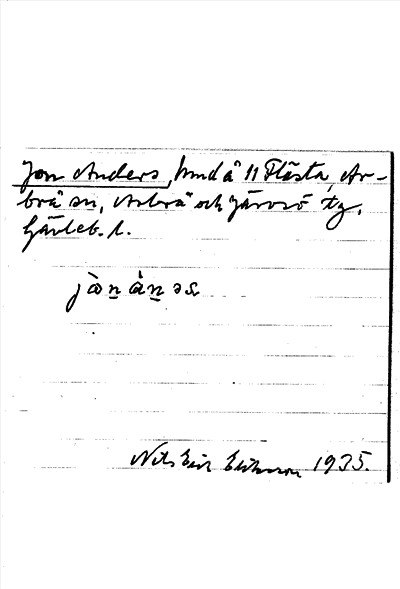 Jon Anders, hmd å 11 Flästa, Ar-
brå sn, Arbrå och Järvsö tg,
Gävleb. l.
jὼn ànəs
Nils Erik Eriksson 1935.